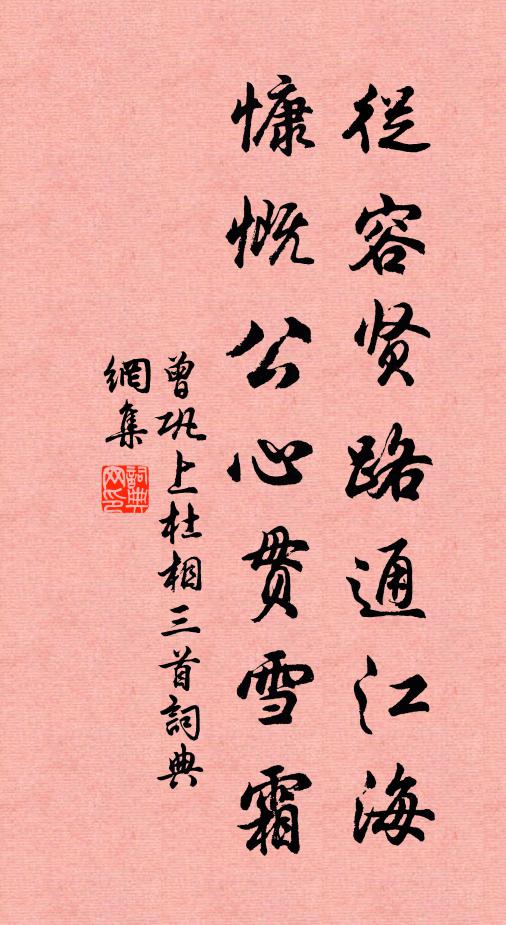 從容贤路通江海
慷慨公心贯雪霜
曾巩上杜相三首詞典
網集
詞典
网印